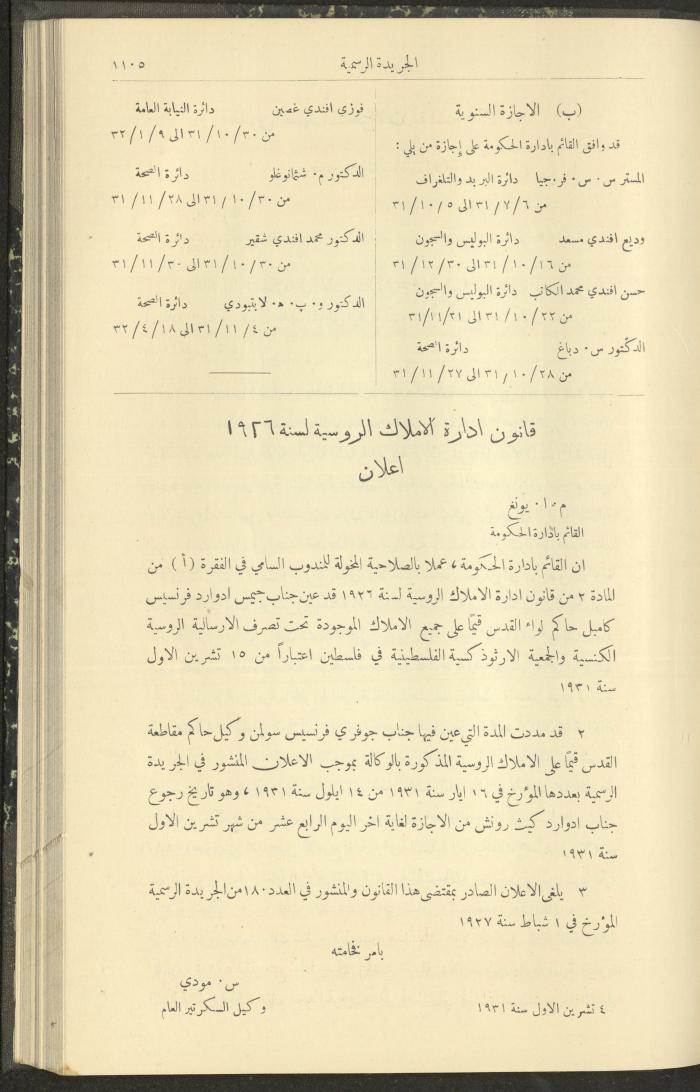 الجريدة الرسمية
١١٠٥
(ب) الاجازة السنوية
قد وافق القائم بادارة الحكومة على إجازة من يلي :
المستر س٠ س٠ فرجيا دائرة البريد والتلغراف
من ٦/ ٧/ ٣١ الى ٥/ ١٠/ ٣١
وديع افندي مسعد دائرة البوليس والسجون
من ١٦/ ١٠/ ٣١ الى ٣٠/ ١٢/ ٣١
حسن افندي محمد الكاتب دائرة البوليس والسجون
من ٢٢/ ١٠/ ٣١ الى ٢١/١١/٣١
الدكتور س٠ دباغ دائرة الصحة
من ٢٨/ ١٠/ ٣١ الى ٢٧/ ١١/ ٣١
فوزي افندي غصين دائرة النيابة العامة
من ٣٠/ ١٠/ ٣١ الى ٩/ ١/ ٣٢
الدكتور م٠ شثانوغلو دائرة الصحة
من ٣٠/ ١٠/ ٣١ الى ٢٨/ ١١/ ٣١
الدكتور محمد افندي شقير دائرة الصحة
من ٣٠/ ١٠/ ٣١ الى ٣٠/ ١١/ ٣١
الدكتور و٠ ب٠ ه٠ لايتبودي دائرة الصحة
من ٤/ ١١/ ٣١ الى ١٨/ ٤/ ٣٢
قانون ادارة الاملاك الروسية لسنة ١٩٢٦
اعلان
م٠ ا٠ يونغ
القائم بادارة الحكومة
ان القائم بادارة الحكومة، عملا بالصلاحية المخولة للمندوب السامي في الفقرة (أ) من
المادة ٢ من قانون ادارة الاملاك الروسية لسنة ١٩٢٦ قد عين جناب جيمس ادوارد فرنسيس
كامبل حاكم لواء القدس قيمًا على جميع الاملاك الموجودة تحت تصرف الارسالية الروسية
الكنسية والجمعية الارثوذكسية الفلسطينية في فلسطين اعتباراً من ١٥ تشرين الاول
سنة ١٩٣١
٢ قد مددت المدة التي عين فيها جناب جوفري فرنسيس سولمن وكيل حاكم مقاطعة
القدس قيمًا على الاملاك الروسية المذكورة بالوكالة بموجب الاعلان المنشور في الجريدة
الرسمية بعددها المؤرخ في ١٦ ايار سنة ١٩٣١ من ١٤ ايلول سنة ١٩٣١، وهو تاريخ رجوع
جناب ادوارد كيث روتش من الاجازة لغاية اخر اليوم الرابع عشر من شهر تشرين الاول
سنة ١٩٣١
٣ يلغى الاعلان الصادر بمقتضى هذا القانون والمنشور في العدد ١٨٠ من الجريدة الرسمية
المؤرخ في ١ شباط سنة ١٩٢٧
بامر فخامته
س٠ مودي
وكيل السكرتير العام
٤ تشرين الاول سنة ١٩٣١